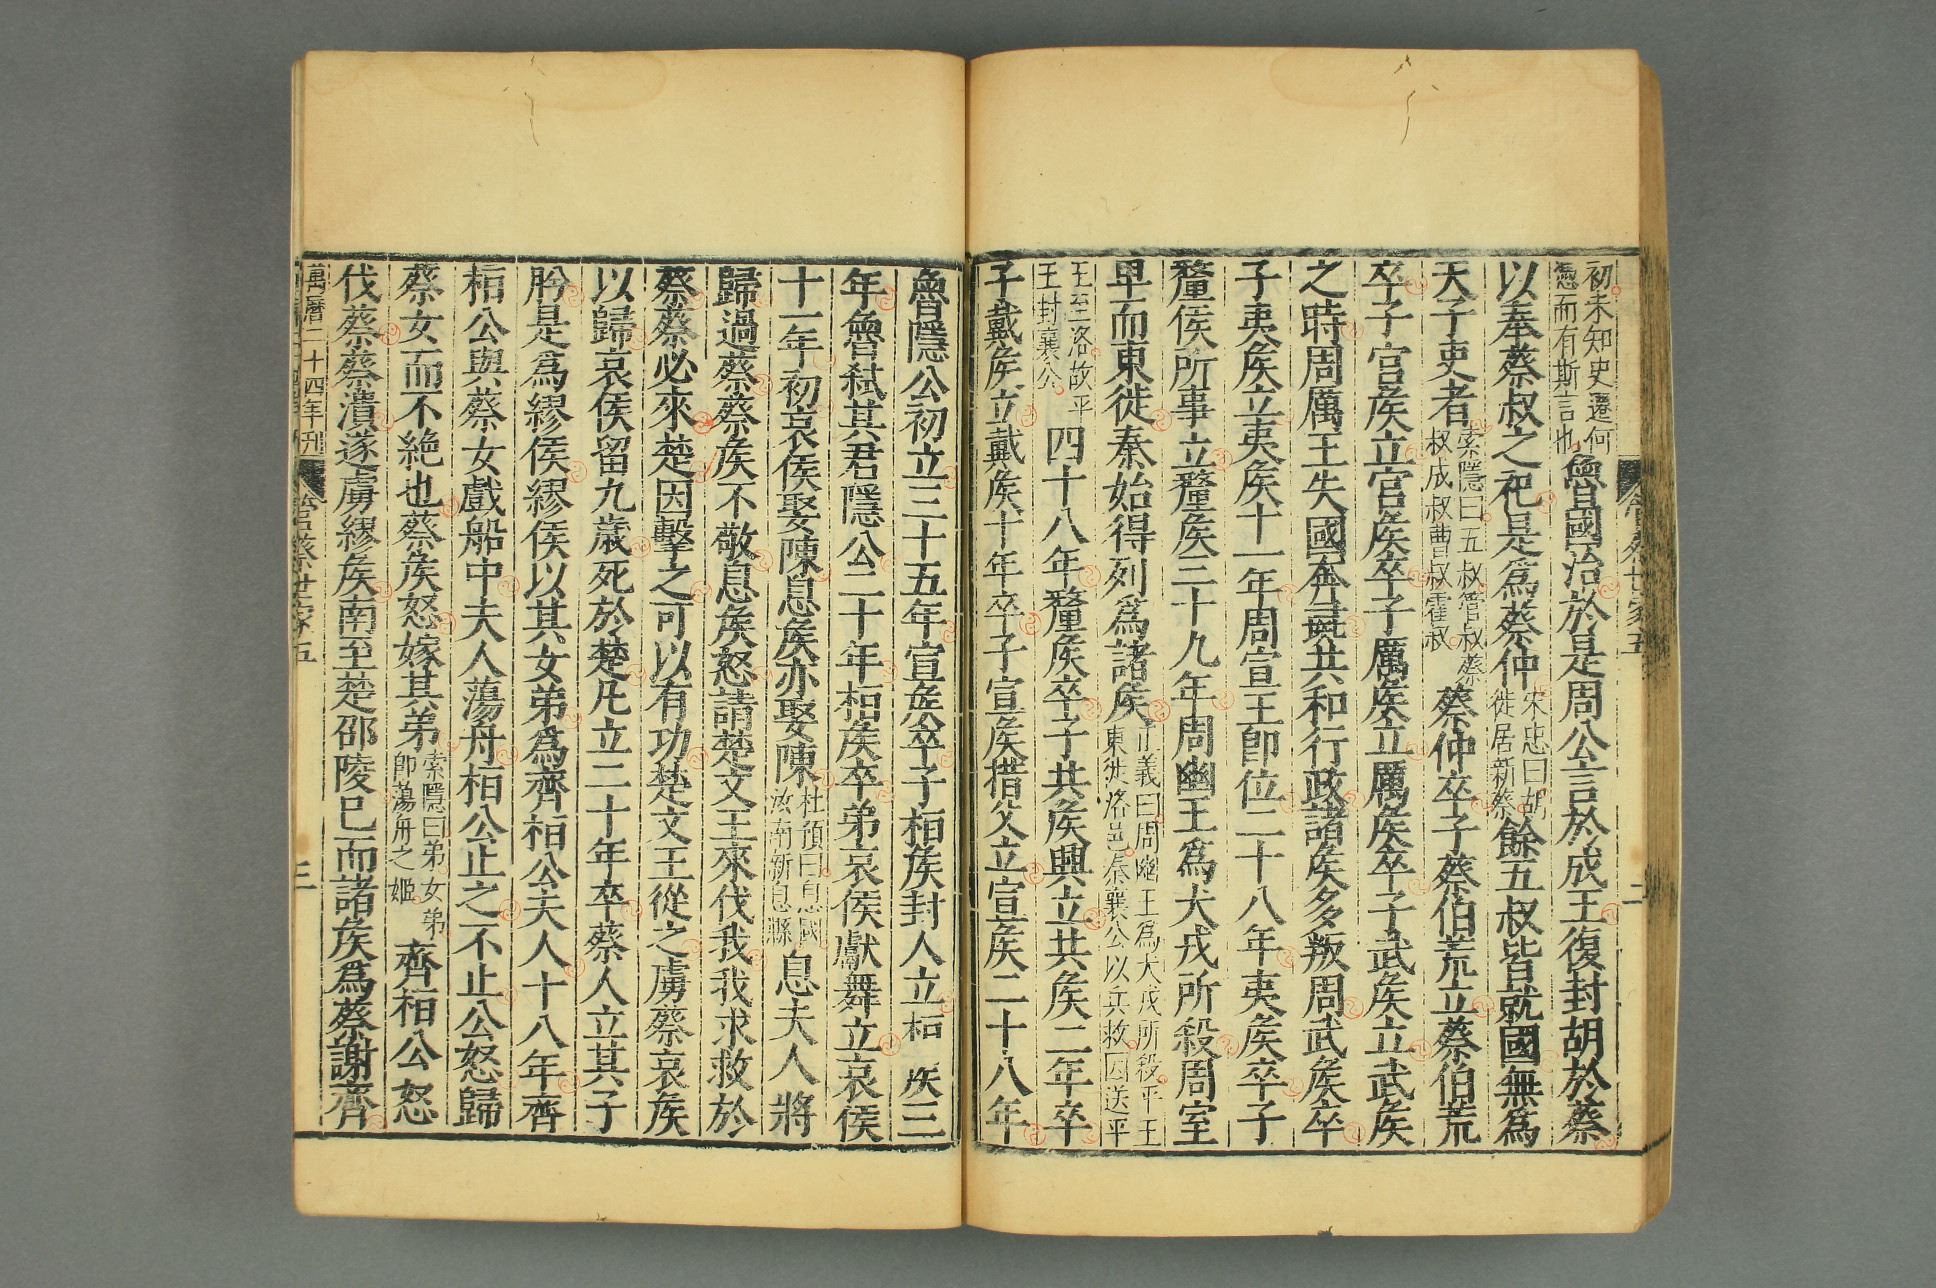 初未知史遷何
憑而有斯言也
魯國治於是周公言於成王復封胡於蔡
以奉蔡叔之祀是為蔡仲
宋忠曰胡
徙居新蔡
餘五叔皆就國無為
天子吏者
索隱曰五叔管叔蔡
叔成叔曹叔霍叔
蔡仲卒子蔡伯荒立蔡伯荒
卒子宮矦立宮矦卒子厲矦立厲矦卒子武矦立武矦
之時周厲王失國奔彘共和行政諸矦多叛周武矦卒
子夷矦立夷矦十一年周宣王即位二十八年夷矦卒子
釐侯所事立釐矦三十九年周幽王為犬戎所殺周室
卑而東徙秦始得列為諸矦
正義曰周幽王為犬戎所殺平王
東徙洛邑秦襄公以兵救因送平
王至洛故平
王封襄公
四十八年釐矦卒子共矦興立共矦二年卒
子戴矦立戴矦十年卒子宣矦措父立宣矦二十八年
魯隱公初立三十五年宣矦卒子桓矦封人立桓矦三
年魯弒其君隱公二十年桓矦卒弟哀侯獻舞立哀侯
十一年初哀侯娶陳息矦亦娶陳
杜預曰息國
汝南新息縣
息夫人將
歸過蔡蔡矦不敬息矦怒請楚文王來伐我我求救於
蔡蔡必來楚因擊之可以有功楚文王從之虜蔡哀矦
以歸哀侯留九歲死於楚凡立二十年卒蔡人立其子
肹是為繆侯繆侯以其女弟為齊桓公夫人十八年齊
桓公與蔡女戲船中夫人蕩舟桓公止之不止公怒歸
蔡女而不絶也蔡矦怒嫁其弟
索隱曰弟女弟
即蕩舟之姬
齊桓公怒
伐蔡蔡潰遂虜繆矦南至楚邵陵已而諸矦為蔡謝齊
萬曆二十四年刊
管蔡世家五
三
管蔡世家五
二